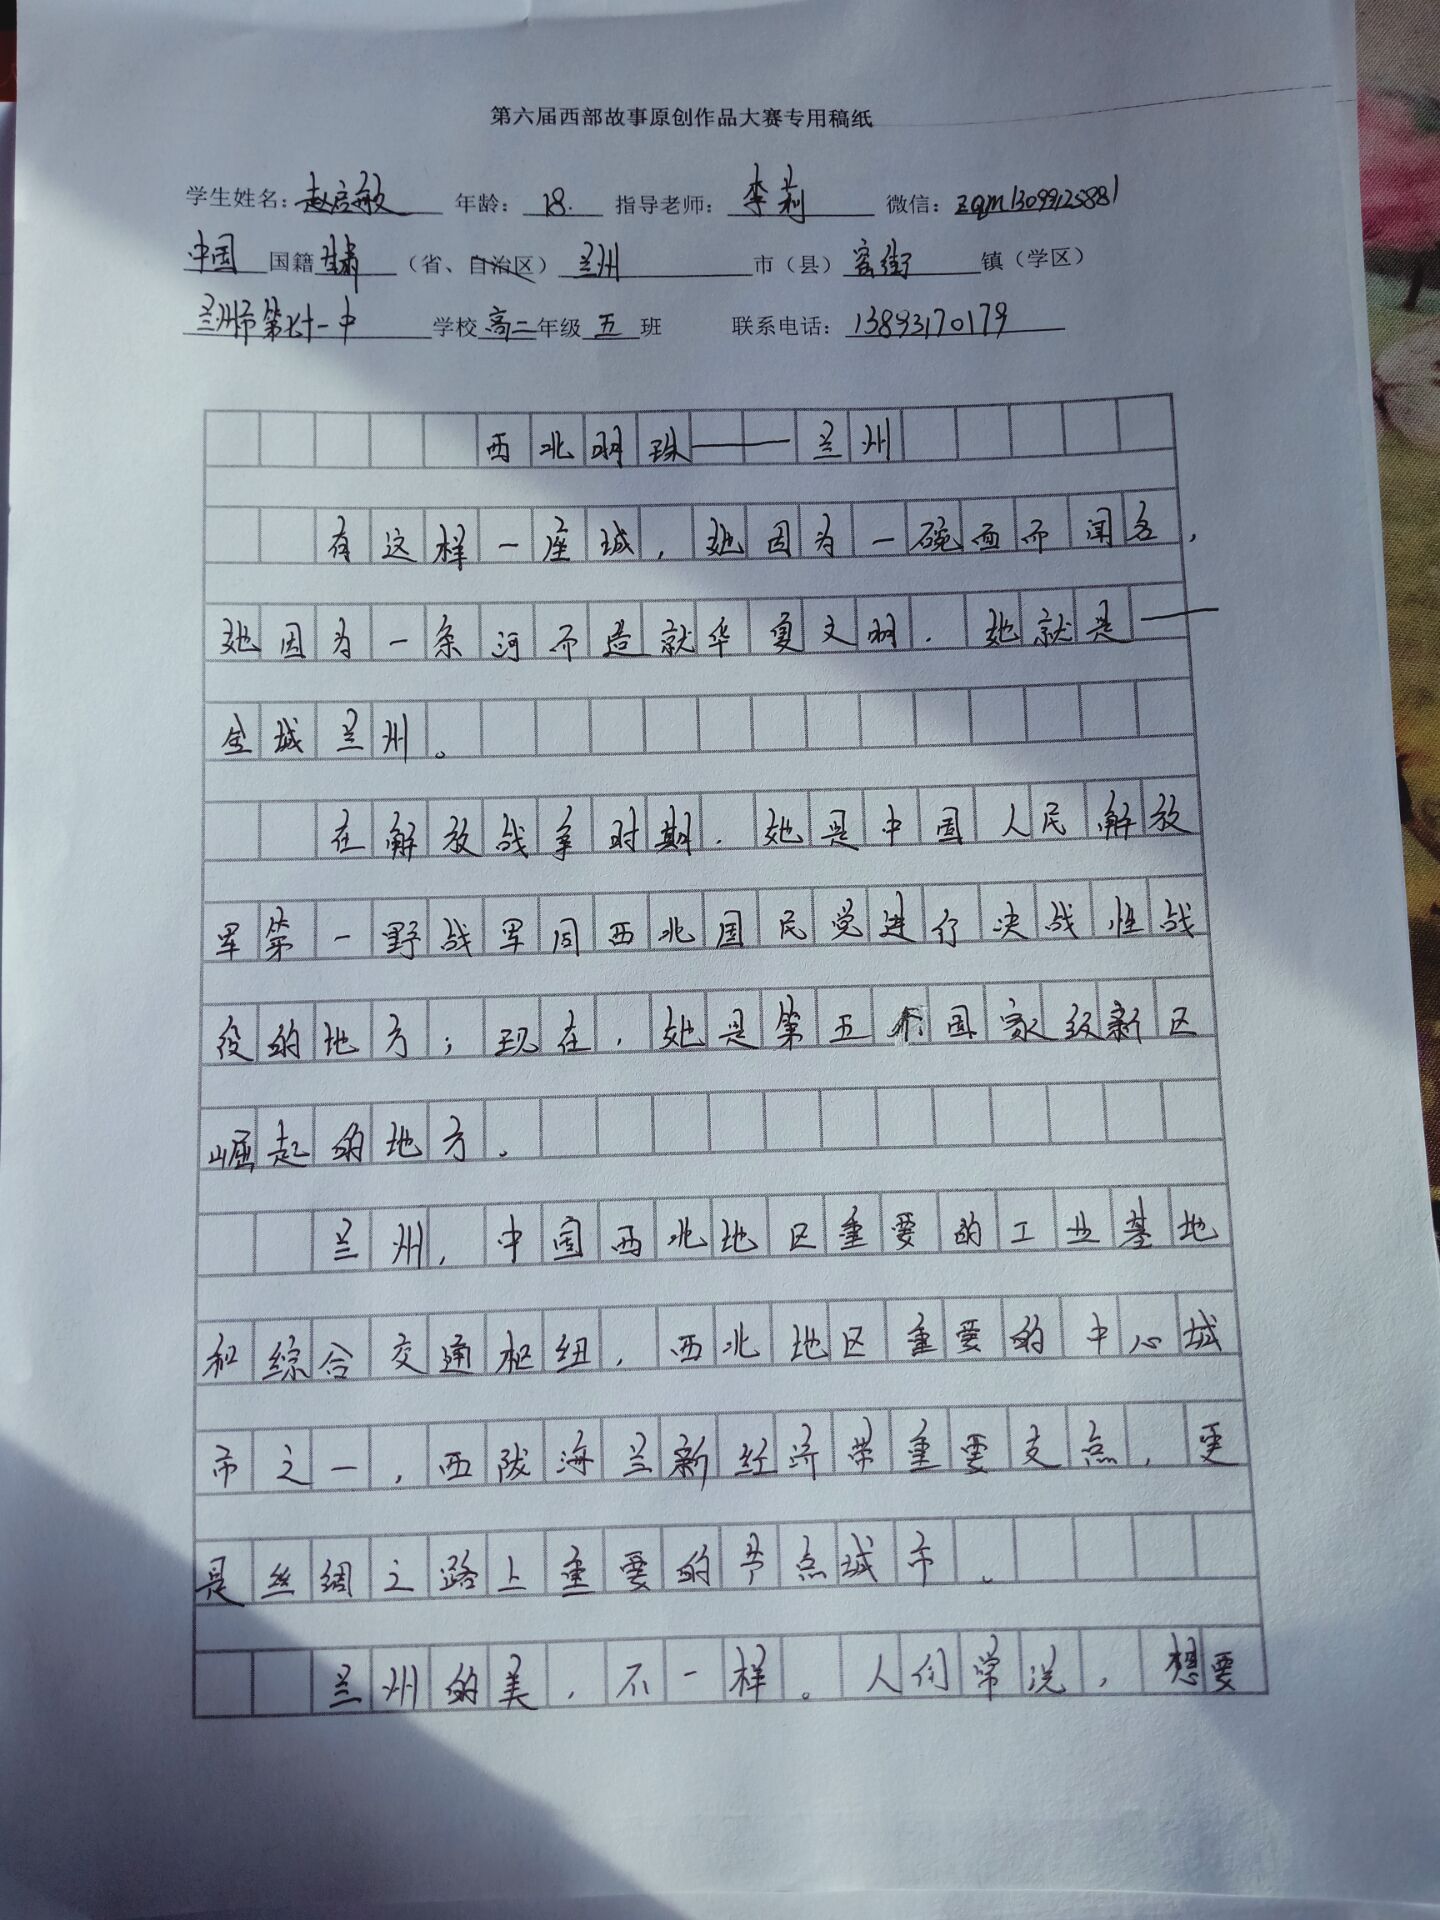 第六届西部故事原创作品大赛专用稿纸
学生姓名：赵启敏 年龄：18. 指导老师：李莉 微信：zqm13099125881
中国国籍 甘肃（省、自治区）兰州市（县）窑街镇（学区）
兰州市第六十一中学校高二年级五班 联系电话：13893170179
西北明珠——兰州
有这样一座城，她因为一碗面而闻名，
她因为一条河而造就华夏文明．她就是——
金城兰州。
在解放战争时期．她是中国人民解放
军第一野战军同西北国民党进行决战性战
役的地方；现在，她是第五个国家级新区
崛起的地方。
兰州，中国西北地区重要的工业基地
和综合交通枢纽，西北地区重要的中心城
市之一，西陇海兰新经济带重要支点，更
是丝绸之路上重要的节点城市。
兰州的美，不一样。人们常说，想要